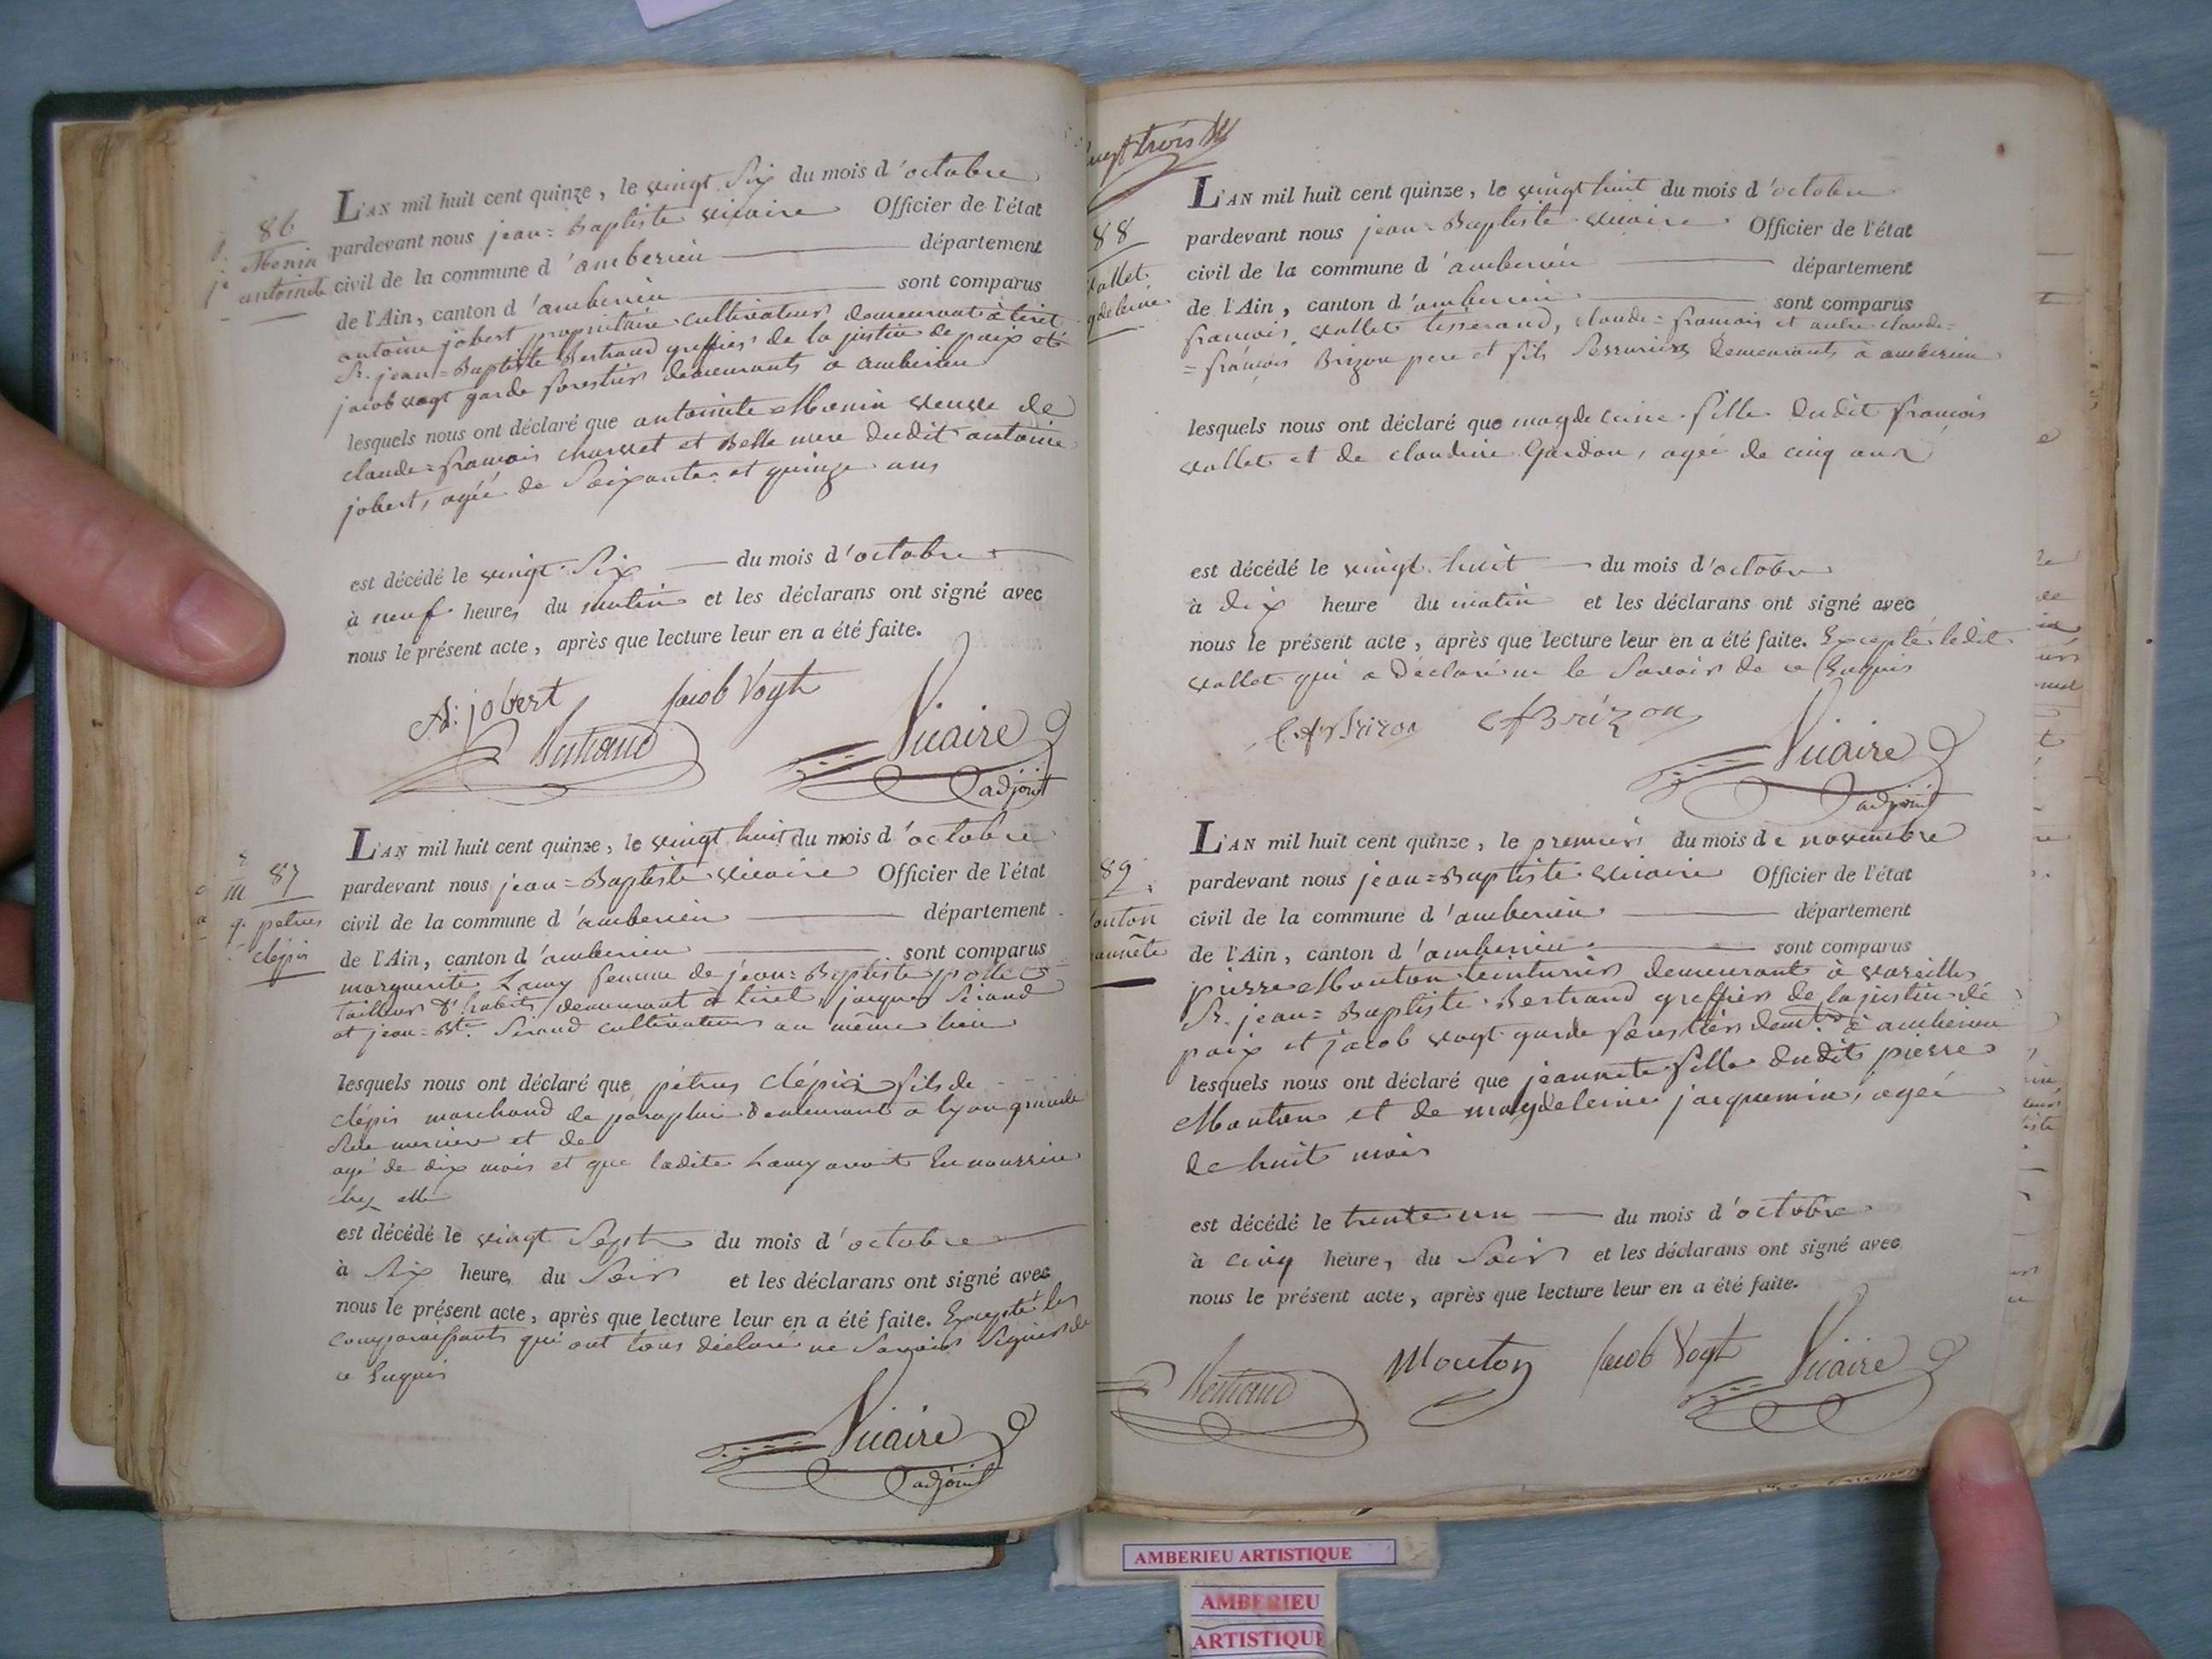 86
Monin
antoinete
L'AN mil huit cent quinze, le vingt Six du mois d'octobre
pardevant nous jean=Baptiste vicaire Officier de l'état
civil de la commune d'amberieu département
de l'Ain, canton d'amberieu sont comparus
antoine jobert propriétaire cultivateur demeurant à tiret
Sr. jean=Baptiste Bertrand greffier de la justice de paix et
jacob vogt garde forestier demeurants a amberieu
lesquels nous ont déclaré que antoinete Monin veuve de
claude=francois charvet et Belle mere dudit antoine
jobert, agée de Soixante et quinze ans
est décédé le vingt Six du mois d'octobre
à neuf heures du matin et les déclarans ont signé avec
nous le présent acte, après que lecture leur en a été faite.
A: jobert Jacob Vogt
Bertrand Vicaire
adjoint
87
petrus
clépis
L'AN mil huit cent quinze, le vingt huit du mois d'octobre
pardevant nous jean=Baptiste vicaire Officier de l'état
civil de la commune d'amberieu département
de l'Ain, canton d'amberieu sont comparus
marguerite Lamy femme de jean=Baptiste
tailleur d'habits demeurant a tiret, jacques Sirand
et jean=Bte. Sirand cultivateurs au même lieu
lesquels nous ont déclaré que pétrus clépis fils de
clépis marchand de parapluie demeurant a lyon grande
Rue merciere et de
agé de dix mois et que ladite Lamy avoit En nourrice
chez elle
est décédé le vingt Sept du mois d'octobre
à Six heures du Soir et les déclarans ont signé avec
nous le présent acte, après que lecture leur en a été faite. Excepté les
comparaissants qui ont tous déclaré ne Savoir Signer de
ce Enquis
Vicaire
adjoint
vingt trois
88
vallet
L'AN mil huit cent quinze, le vingt huit du mois d'octobre
pardevant nous jean=Baptiste vicaire Officier de l'état
civil de la commune d'amberieu département
de l'Ain, canton d'amberieu sont comparus
francois vallet tisserand, claude=francois et autre claude=
=françois Brizon pere et fils Serruriers demeurants à amberieu
lesquels nous ont déclaré que magdeleine fille dudit francois
vallet et de claudine Gardon, agée de cinq ans
est décédé le vingt huit du mois d'octobre
à dix heure du matin et les déclarans ont signé avec
nous le présent acte, après que lecture leur en a été faite. Excepté ledit
vallet qui a déclaré ne le Savoir de ce Enquis
C.f Brizon Cf Brizon
Vicaire
adjoint
89
L'AN mil huit cent quinze, le premier du mois de novembre
pardevant nous jean=Baptiste vicaire Officier de l'état
civil de la commune d'amberieu département
de l'Ain, canton d'amberieu sont comparus
pierre Mouton teinturier demeurant à vareilles
Sr. jean=Baptiste Bertrand greffier de la justice de
paix et jacob vogt garde forestier demts. à amberieu
lesquels nous ont déclaré que jeannete fille dudit pierre
Mouton et de magdeleine jacquemin, agée
de huit mois
est décédé le trente un du mois d'octobre
à cinq heures du Soir et les déclarans ont signé avec
nous le présent acte, après que lecture leur en a été faite.
Bertrand Mouton Jacob Vogt Vicaire
AMBERIEU ARTISTIQUE
AMBERIEU
ARTISTIQUE